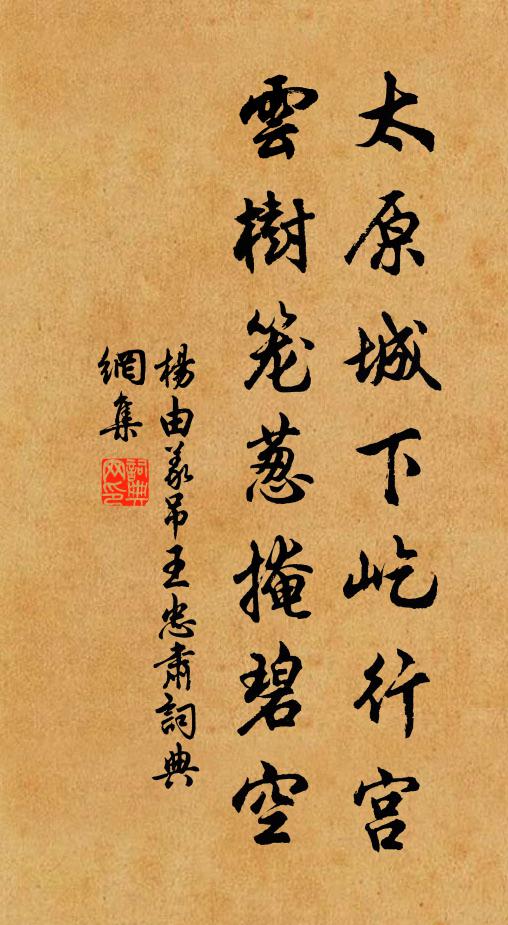 太原城下屹行宫
雲樹笼葱掩碧空
楊由義吊王忠肅詞典
網集
詞典網印